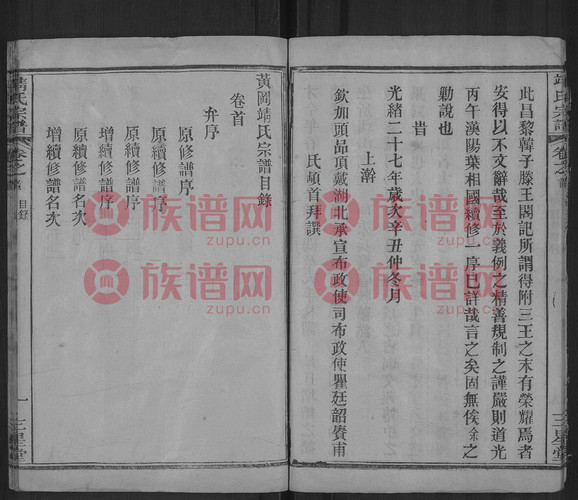 靖氏宗譜
卷之首
三星堂
此昌黎韓子滕王閣記所謂得附三王之末有榮耀焉者
安得以不文辭哉至於義例之精善規制之謹嚴則道光
丙午漢陽葉相國續修一序已詳哉言之矣固無俟余之
勦說也
旹
光緒二十七年歲次辛丑仲冬月
上澣
欽加頭品頂戴湖北承宣布政使司布政使瞿廷韶賡甫
氏頓首拜譔
黃岡靖氏宗譜目錄
卷首
弁序
原修譜序
原續修譜序
增續修譜序
原修譜名次
原續修譜名次
增續修譜名次
靖氏宗譜
卷之首
目錄
一
三星堂
族谱网
zupu.cn
族谱网
zupu.cn
族谱网
zupu.cn
族谱网
zupu.cn